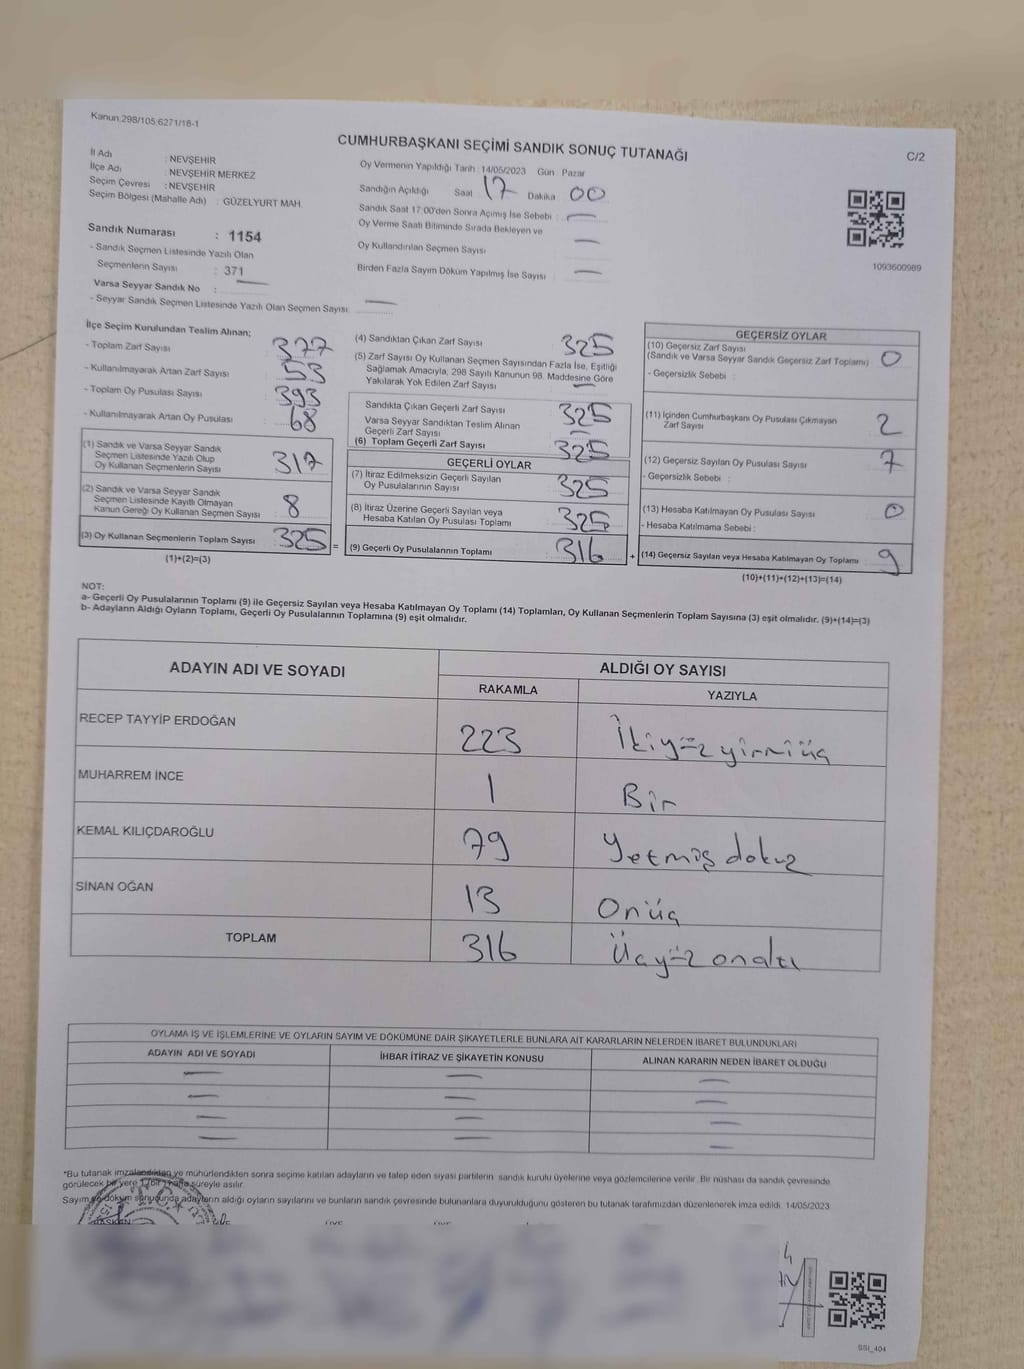 Kanun:298/105;6271/18-1
CUMHURBAŞKANI SEÇİMİ SANDIK SONUÇ TUTANAĞI
C/2
İl Adı : NEVŞEHİR
İlçe Adı : NEVŞEHİR MERKEZ
Seçim Çevresi : NEVŞEHİR
Seçim Bölgesi (Mahalle Adı) : GÜZELYURT MAH.
Sandık Numarası : 1154
- Sandık Seçmen Listesinde Yazılı Olan
Seçmenlerin Sayısı : 371
Varsa Seyyar Sandık No : —
- Seyyar Sandık Seçmen Listesinde Yazılı Olan Seçmen Sayısı: —
Oy Vermenin Yapıldığı Tarih : 14/05/2023 Gün : Pazar
Sandığın Açıldığı Saat 17 Dakika 00
Sandık Saat 17:00'den Sonra Açımış İse Sebebi : —
Oy Verme Saati Bitiminde Sırada Bekleyen ve
Oy Kullandırılan Seçmen Sayısı —
Birden Fazla Sayım Döküm Yapılmış İse Sayısı —
1093600989
İlçe Seçim Kurulundan Teslim Alınan;
- Toplam Zarf Sayısı : 377
- Kullanılmayarak Artan Zarf Sayısı : 53
- Toplam Oy Pusulası Sayısı : 393
- Kullanılmayarak Artan Oy Pusulası : 68
(1) Sandık ve Varsa Seyyar Sandık
Seçmen Listesinde Yazılı Olup
Oy Kullanan Seçmenlerin Sayısı 317
(2) Sandık ve Varsa Seyyar Sandık
Seçmen Listesinde Kayıtlı Olmayan
Kanun Gereği Oy Kullanan Seçmen Sayısı 8
(3) Oy Kullanan Seçmenlerin Toplam Sayısı 325
(1)+(2)=(3)
=
(4) Sandıktan Çıkan Zarf Sayısı 325
(5) Zarf Sayısı Oy Kullanan Seçmen Sayısından Fazla İse, Eşitliği
Sağlamak Amacıyla, 298 Sayılı Kanunun 98. Maddesine Göre
Yakılarak Yok Edilen Zarf Sayısı —
Sandıkta Çıkan Geçerli Zarf Sayısı 325
Varsa Seyyar Sandıktan Teslim Alınan
Geçerli Zarf Sayısı —
(6) Toplam Geçerli Zarf Sayısı 325
GEÇERLİ OYLAR
(7) İtiraz Edilmeksizin Geçerli Sayılan
Oy Pusulalarının Sayısı 325
(8) İtiraz Üzerine Geçerli Sayılan veya
Hesaba Katılan Oy Pusulası Toplamı 325
(9) Geçerli Oy Pusulalarının Toplamı 316
+
GEÇERSİZ OYLAR
(10) Geçersiz Zarf Sayısı
(Sandık ve Varsa Seyyar Sandık Geçersiz Zarf Toplamı) 0
- Geçersizlik Sebebi :
(11) İçinden Cumhurbaşkanı Oy Pusulası Çıkmayan
Zarf Sayısı 2
(12) Geçersiz Sayılan Oy Pusulası Sayısı 7
- Geçersizlik Sebebi :
(13) Hesaba Katılmayan Oy Pusulası Sayısı 0
- Hesaba Katılmama Sebebi :
(14) Geçersiz Sayılan veya Hesaba Katılmayan Oy Toplamı 9
(10)+(11)+(12)+(13)=(14)
NOT:
a- Geçerli Oy Pusulalarının Toplamı (9) ile Geçersiz Sayılan veya Hesaba Katılmayan Oy Toplamı (14) Toplamları, Oy Kullanan Seçmenlerin Toplam Sayısına (3) eşit olmalıdır. (9)+(14)=(3)
b- Adayların Aldığı Oyların Toplamı, Geçerli Oy Pusulalarının Toplamına (9) eşit olmalıdır.
ADAYIN ADI VE SOYADI
ALDIĞI OY SAYISI
RAKAMLA YAZIYLA
RECEP TAYYİP ERDOĞAN 223 İkiyüz yirmiüç
MUHARREM İNCE 1 Bir
KEMAL KILIÇDAROĞLU 79 Yetmiş dokuz
SİNAN OĞAN 13 Onüç
TOPLAM 316 Üçyüz onaltı
OYLAMA İŞ VE İŞLEMLERİNE VE OYLARIN SAYIM VE DÖKÜMÜNE DAİR ŞİKAYETLERLE BUNLARA AİT KARARLARIN NELERDEN İBARET BULUNDUKLARI
ADAYIN ADI VE SOYADI İHBAR İTİRAZ VE ŞİKAYETİN KONUSU ALINAN KARARIN NEDEN İBARET OLDUĞU
— — —
— — —
— — —
— — —
*Bu tutanak imzalandıktan ve mühürlendikten sonra seçime katılan adayların ve talep eden siyasi partilerin sandık kurulu üyelerine veya gözlemcilerine verilir. Bir nüshası da sandık çevresinde
görülecek bir yere 1 (bir) hafta süreyle asılır.
Sayım ve döküm sonucunda adayların aldığı oyların sayılarını ve bunların sandık çevresinde bulunanlara duyurulduğunu gösteren bu tutanak tarafımızdan düzenlenerek imza edildi. 14/05/2023
T.C.
BAŞKAN
SSI_404